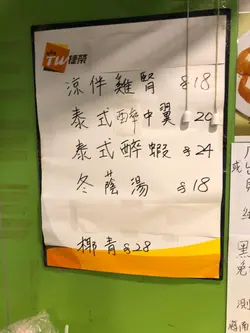 TW捷榮
涼伴雞腎 $18
泰式醉中翼 20
泰式醉蝦 $24
冬蔭湯 $18
椰青 $28
黑